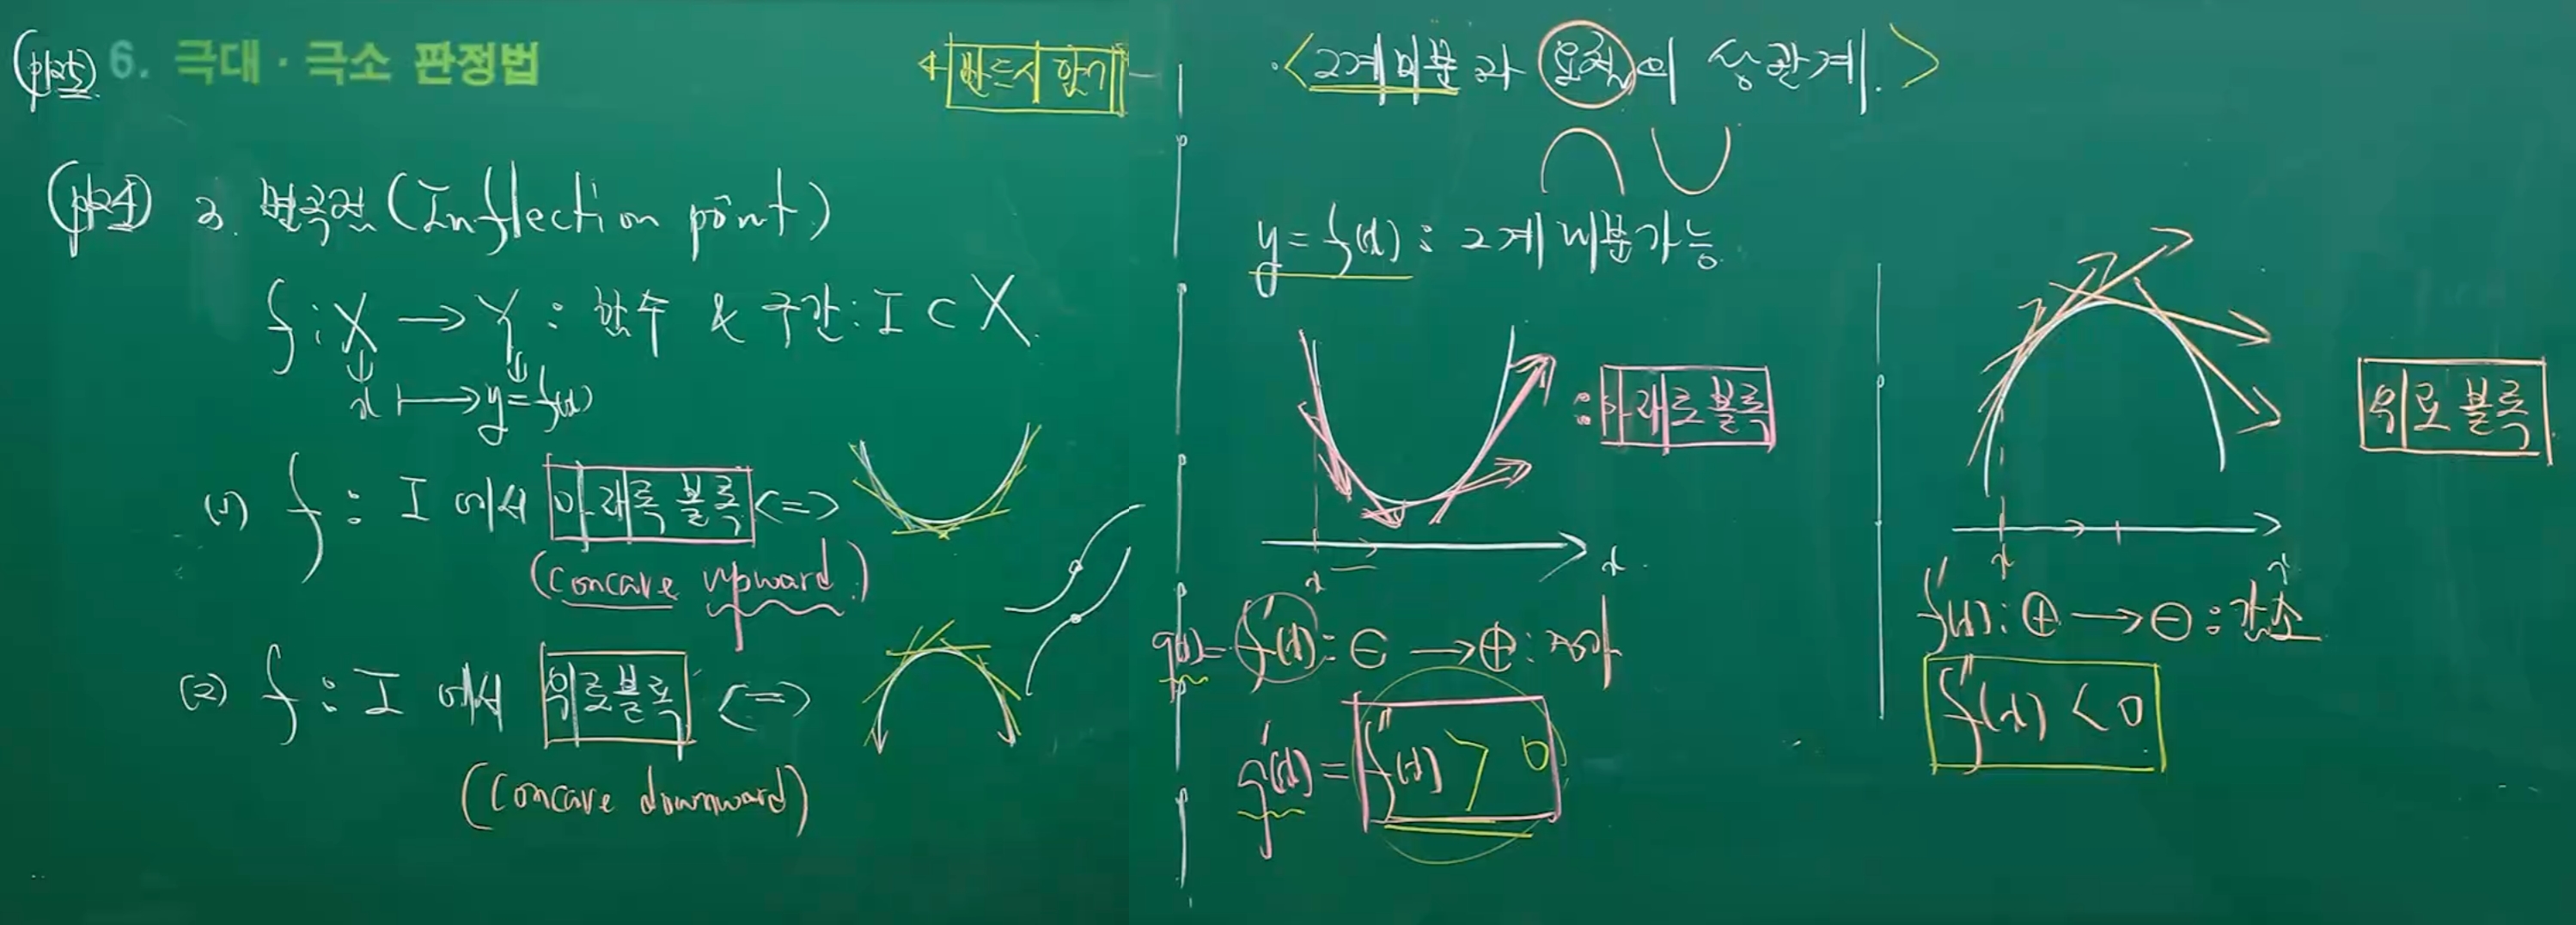 (p125) 6. 극대 · 극소 판정법
반드시 암기
(p124) 3. 변곡점 (Inflection point)
f : X → Y : 함수 & 구간 : I ⊂ X.
x ↦ y = f(x)
(1) f : I 에서 아래로 볼록 <=>
(concave upward.)
(2) f : I 에서 위로 볼록 <=>
(concave downward)
<2계미분과 요철의 상관계.>
y = f(x) : 2계 미분가능
: 아래로 볼록
x
x
g(x) = f'(x) : ⊖ → ⊕ : 증가
g'(x) = f''(x) > 0
위로 볼록
x
x
f'(x) : ⊕ → ⊖ : 감소
f''(x) < 0